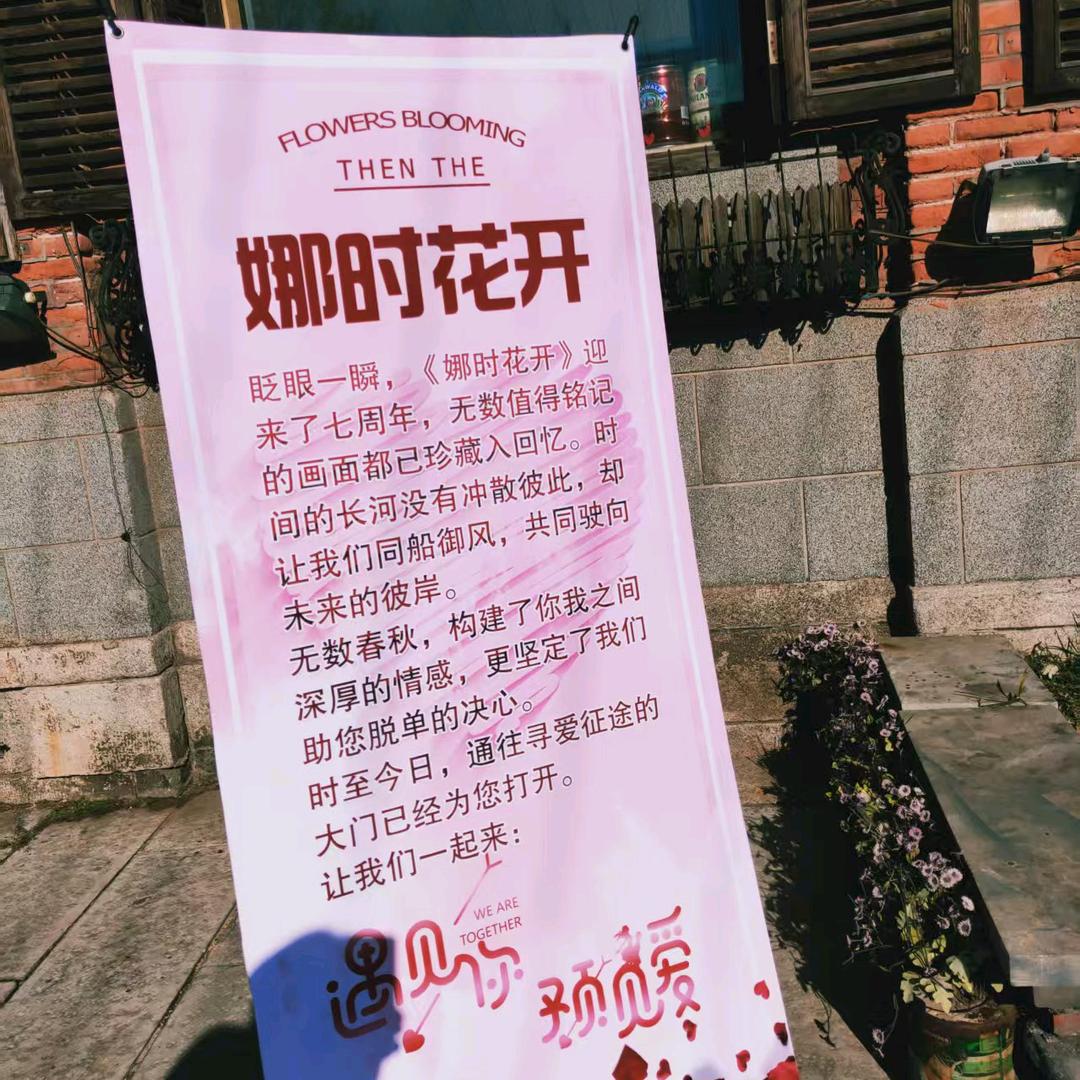 FLOWERS BLOOMING
THEN THE
娜时花开
眨眼一瞬，《娜时花开》迎
来了七周年，无数值得铭记
的画面都已珍藏入回忆。时
间的长河没有冲散彼此，却
让我们同船御风，共同驶向
未来的彼岸。
无数春秋，构建了你我之间
深厚的情感，更坚定了我们
助您脱单的决心。
时至今日，通往寻爱征途的
大门已经为您打开。
让我们一起来：
WE ARE
TOGETHER
遇见你 预见爱